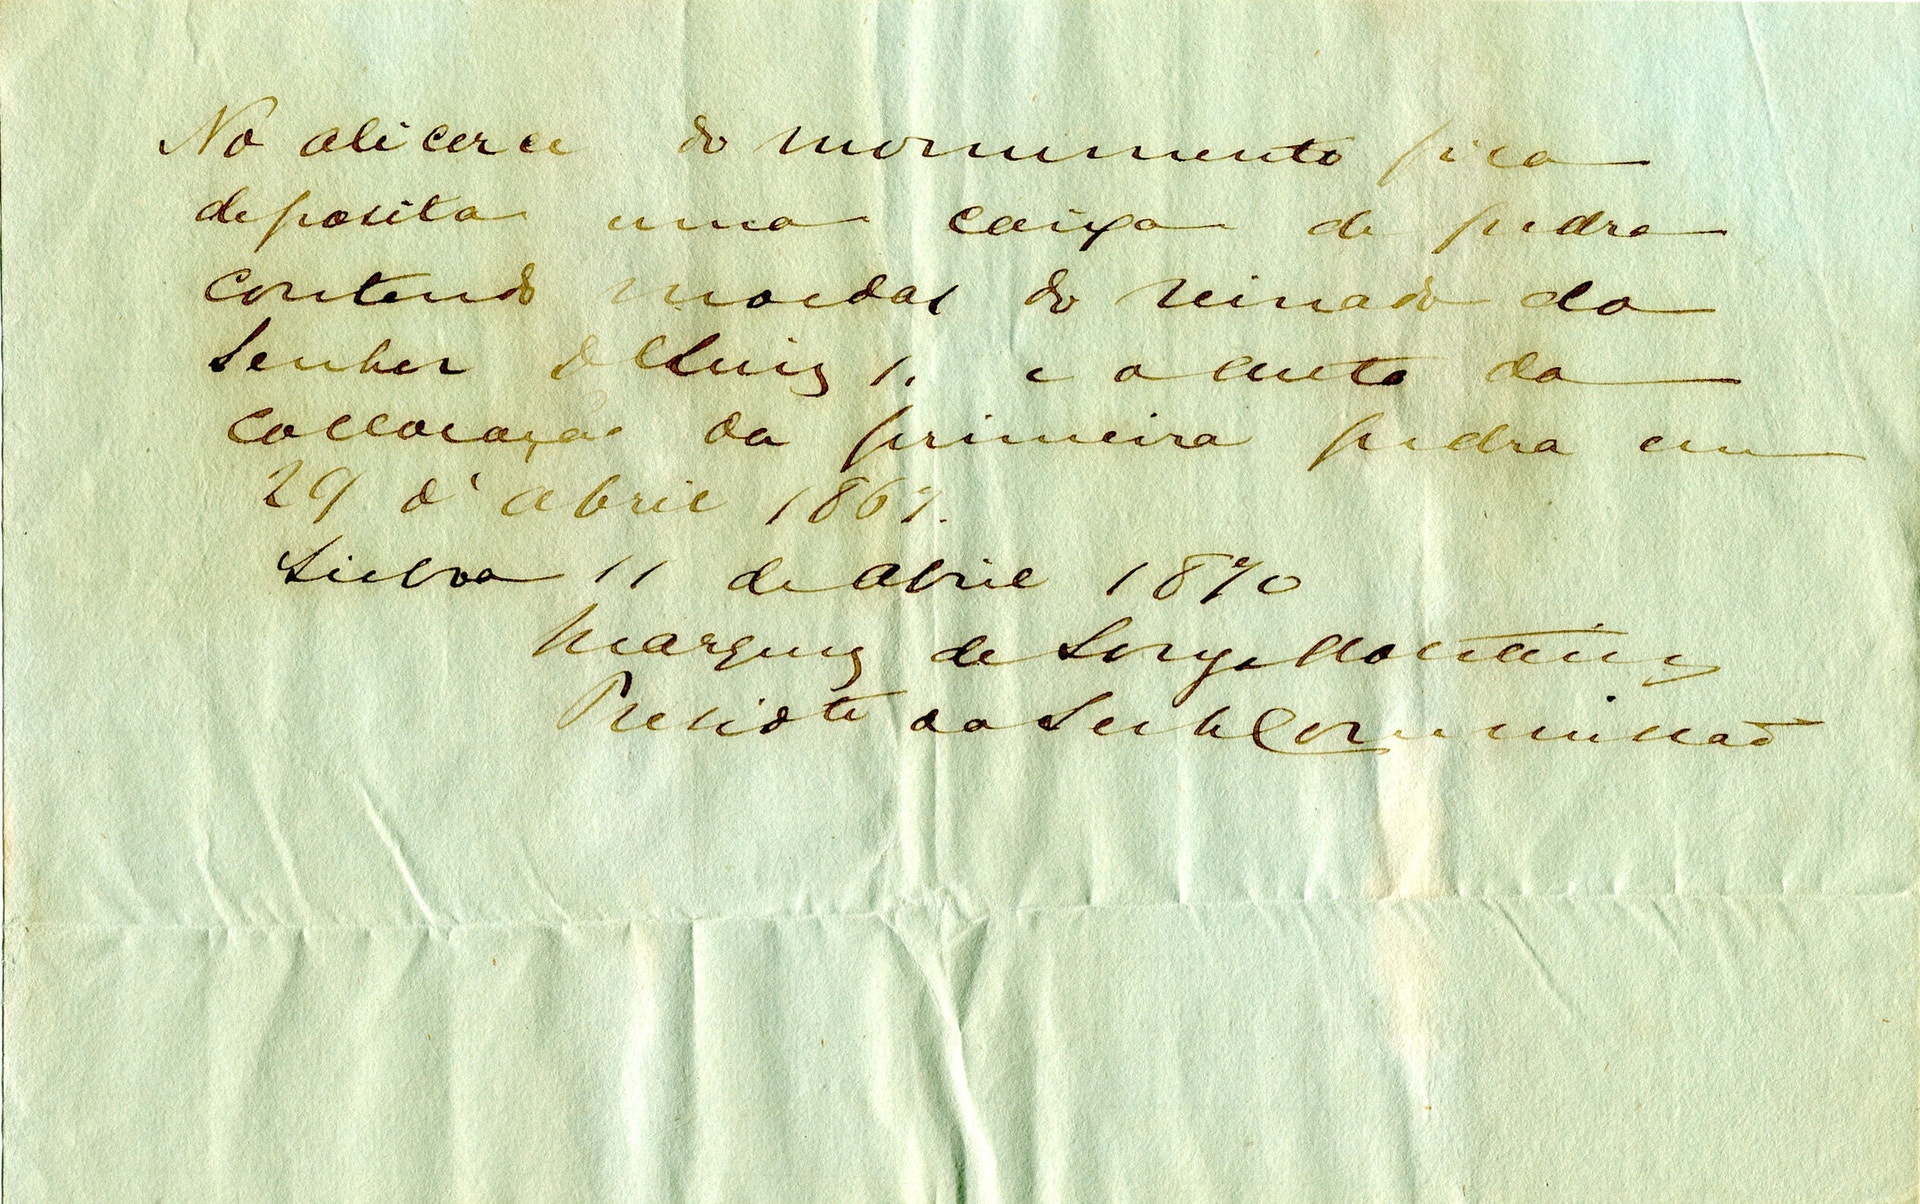 No alicerce do monumento fica
deposita uma caixa de pedra
contendo moedas do reinado do
Senhor D Luiz 1. e o auto da
collocação da primeira pedra em
29 d'abril 1867.
Lisboa 11 de abril 1870
Marquez de Souza Holstein
Presidte da Sub Commissaõ